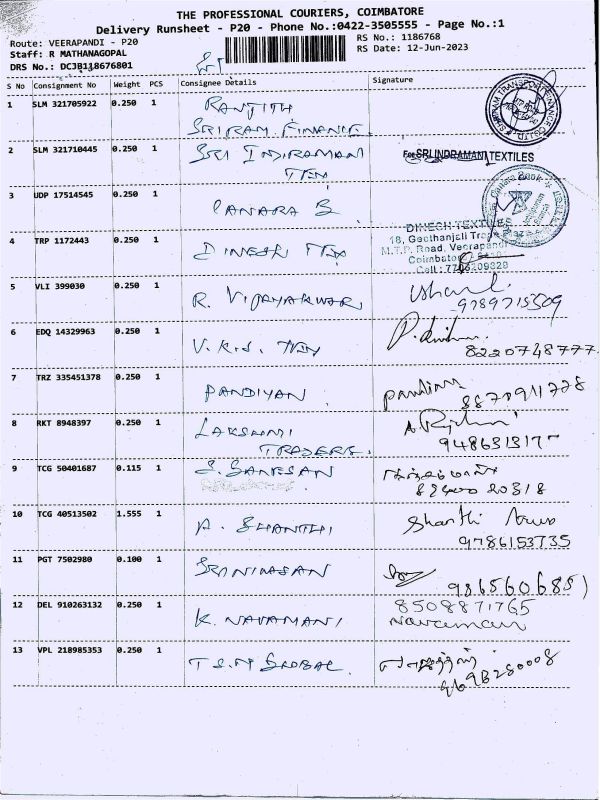 THE PROFESSIONAL COURIERS, COIMBATORE
Delivery Runsheet - P20 - Phone No.:0422-3505555 - Page No.:1
Route: VEERAPANDI - P20
RS No.: 1186768
Staff: R MATHANAGOPAL
RS Date: 12-Jun-2023
DRS No.: DCJB118676801
S No Consignment No Weight PCS Consignee Details Signature
1 SLM 321705922 0.250 1 RANJITH
SRIRAM FINANCE.
2 SLM 321710445 0.250 1 SRI INDIRAMANI
TEX
For SRI INDRAMANI TEXTILES
3 UDP 17514545 0.250 1 CANARA B
Canara Bank
4 TRP 1172443 0.250 1 DINESH TEX
DINESH TEXTILES
18, Geethanjali
M.T.P. Road, Veerapandi
Coimbatore
Cell : 7708209828
5 VLI 399030 0.250 1 R. VIJAYAKUMAR
9789715509
6 EDQ 14329963 0.250 1 V.K.S. TEX
8220748777
7 TRZ 335451378 0.250 1 PANDIYAN
8870911778
8 RKT 8948397 0.250 1 LAKSHMI
TRADERS.
9 TCG 50401687 0.115 1 S. GANESAN
10 TCG 40513502 1.555 1 A. SHANTHI
Shanthi
9786153735
11 PGT 7502980 0.100 1 SRINIVASAN
9865606851
12 DEL 910263132 0.250 1 K. NAVAMANI
8508871765
Navamani
13 VPL 218985353 0.250 1 T.S.M GLOBAL